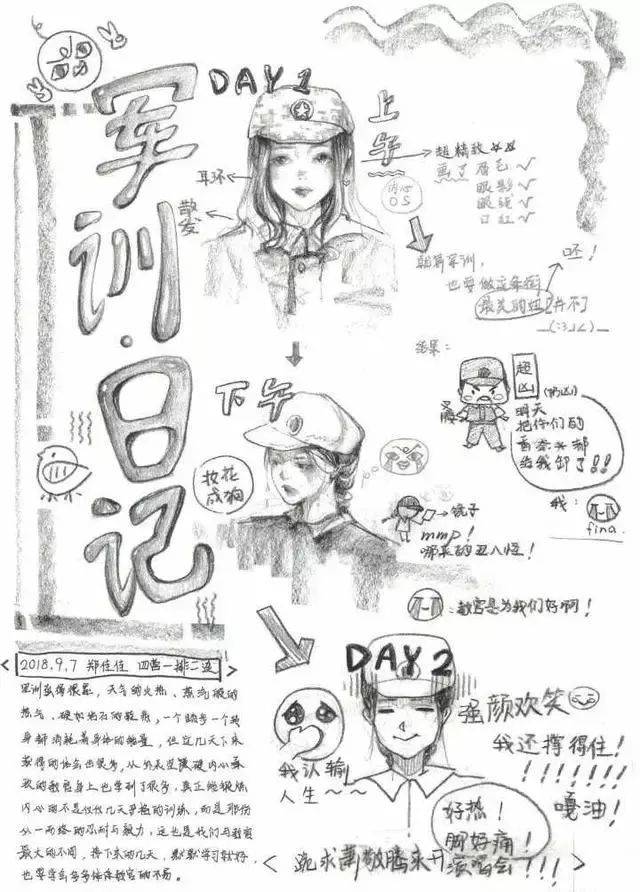 军训·日记
DAY 1
上午
耳环
散发
内心
OS
超精致
画了眉毛✓
眼影✓
眼线✓
口红✓
就算军训，
也要做这条街
最美的妞[并不]
呸！
结果：
超凶
(奶凶)
明天
把你们的
给我卸了!!
我：
fina.
下午
妆花
成狗
镜子
mmp!
哪来的丑八怪！
：教官是为我们好啊！
2018.9.7 郑佳佳 四营一排二连
军训虽得很累，天气的火热、蒸汽般的
热气、硬如岩石的鞋底，一个踏步一个转
身都消耗着身体的能量，但这几天下来
获得的体会也更多，从外表坚硬内心柔
软的教官身上也学到了很多，真正能锻炼
内心的不是仅仅几天严酷的训练，而是那份
从一而终的忍耐与毅力，这也是我们与教官
最大的不同，接下来的几天，默默学习就好，
也要学会多多体谅教官的不易。
DAY 2
我认输
人生~~~~
强颜欢笑
我还撑得住！
!!!!!!
嘎油！
好热！
脚好痛！
< 跪求萧敬腾来开演唱会!!! >